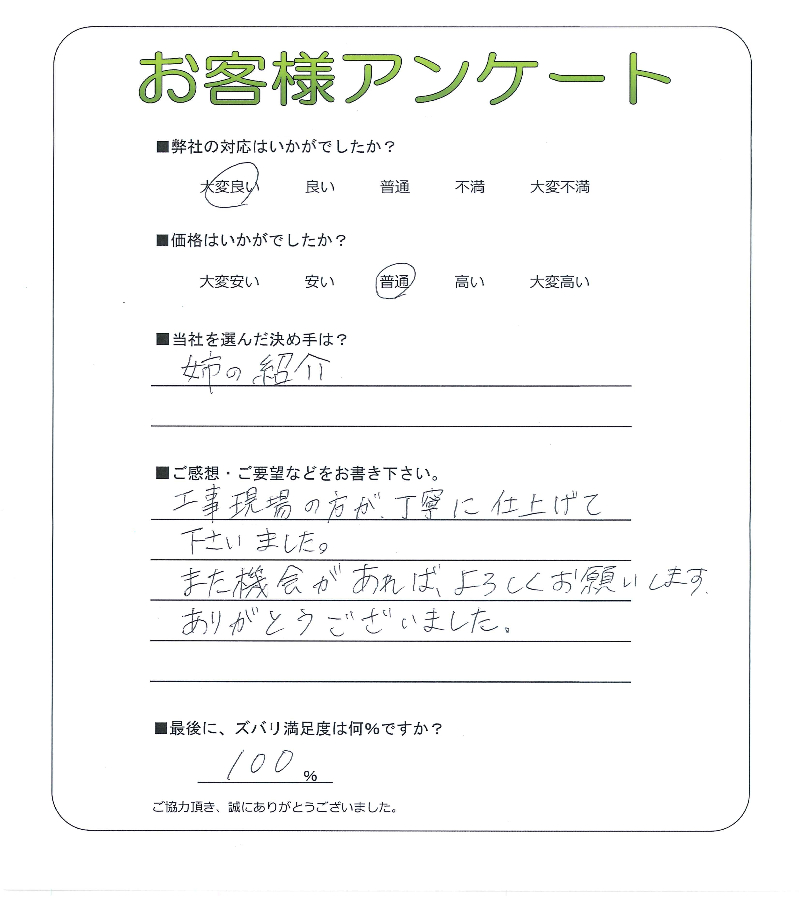 お客様アンケート
■弊社の対応はいかがでしたか？
大変良い 良い 普通 不満 大変不満
■価格はいかがでしたか？
大変安い 安い 普通 高い 大変高い
■当社を選んだ決め手は？
姉の紹介
■ご感想・ご要望などをお書き下さい。
工事現場の方が、丁寧に仕上げて
下さいました。
また機会があれば、よろしくお願いします。
ありがとうございました。
■最後に、ズバリ満足度は何%ですか？
100%
ご協力頂き、誠にありがとうございました。